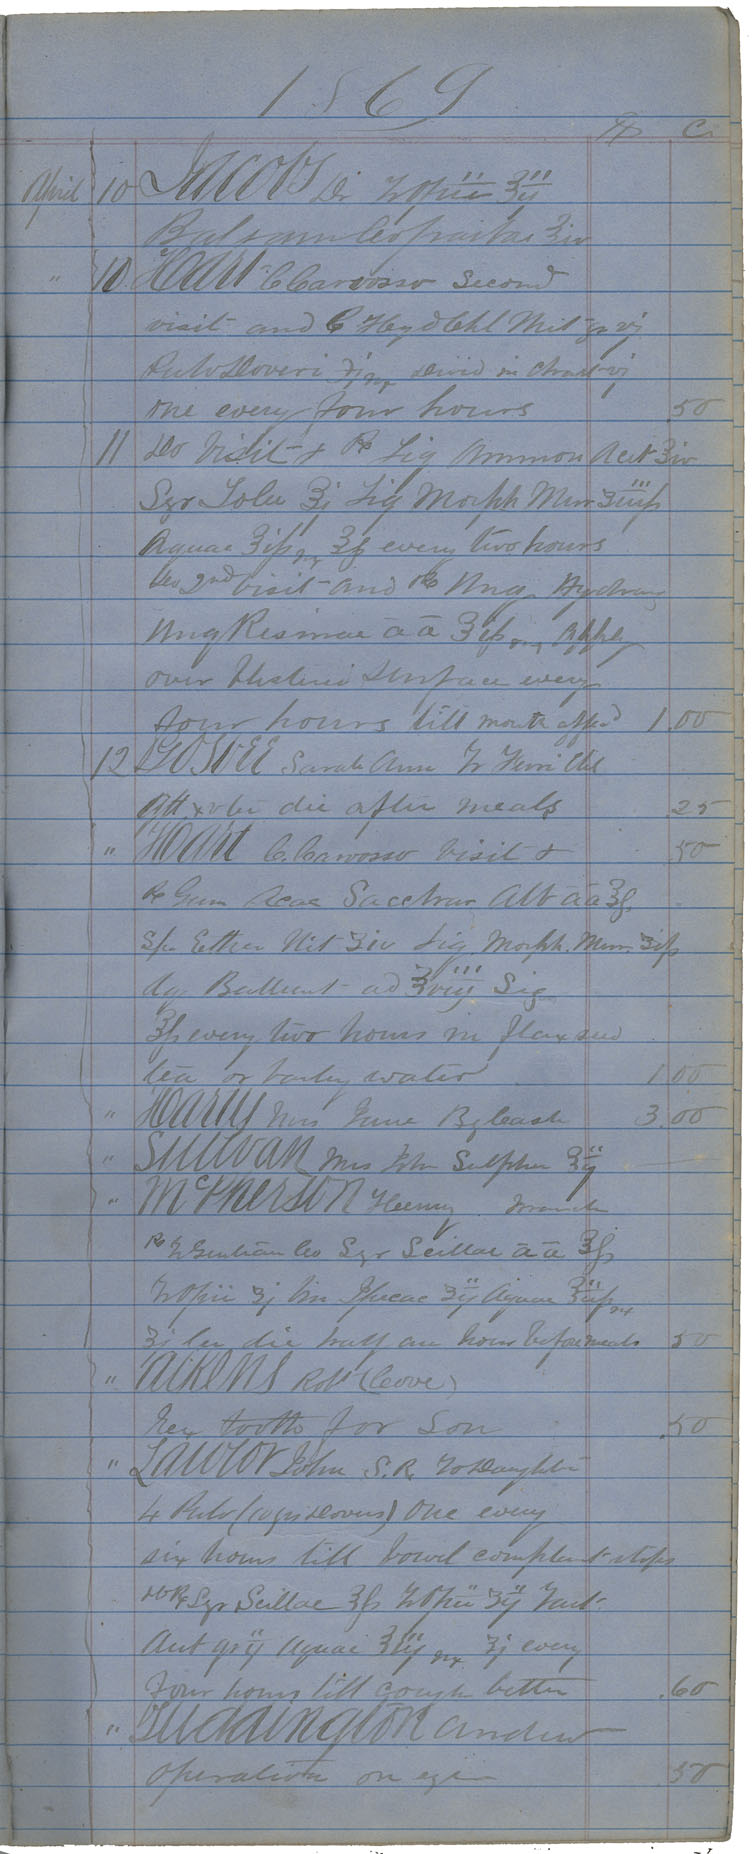 1869
$ C
April 10 Jacobs Dr Tr Opii ʒii
Balsam Copaibae ʒiv
" 10 Hart C Carvosso Second
visit and Hyd Chl Mit gr vj
Pulv Doveri ʒj Divid in Chart vj
one every four hours 50
11 Do Visit & ℞ Liq Ammon Acet ʒiv
Syr Tolu ʒj Liq Morph Mur ʒiiiss
Aquae ʒiss ʒss every two hours
Do 2nd visit and ℞ Ung Hydrarg
Ung Resinae āā ʒiss Apply
over surface every
four hours till mouth affd 1.00
12 Sarah Ann Tr Ferri Chl
gtt xv ter die after meals 25
" Hart C. Carvosso Visit & 50
℞ Gum Acac Sacchar Alb āā ʒss
Sp Ether Nit ʒiv Liq. Morph. Mur. ʒiss
Aq Bullient ad ʒviii Sig
ʒss every two hours in flaxseed
tea or barley water 1.00
" Harry Mrs Jane By Cash 3.00
" Sullivan Mrs John Sulphur ʒij
" McPherson Henry
℞ Tr Gentian Co Syr Scillae āā ʒss
Tr Opii ʒj Vin Ipecac ʒij Aquae ʒiiiss
ʒj ter die half an hour before meals 50
" Aikens Robt (Cove)
Xex tooth for Son .50
" Lawlor John S.R. To Daughter
4 Pulv (10 grs Dovers) One every
six hours till bowel complaint stops
℞ Syr Scillae ʒss Tr Opii ʒij Tart.
Ant grij Aquae ʒiij ʒj every
four hours till cough better .60
" Tuddington Andrew
operation on eye 50